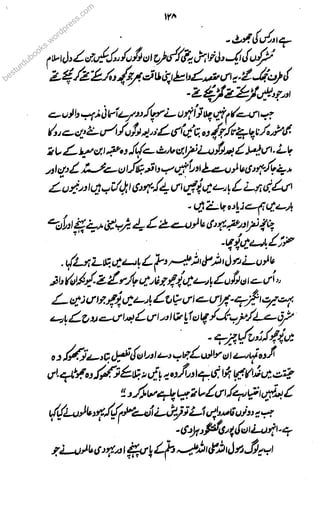 ۱۲۸
ہے اور کس کی جھوٹ۔
مشرکوں کی ایک دلی خواہش یہ تھی کہ کسی طرح ان لوگوں کو روک دیں جن کے دل اسلام
کی طرف جھک گئے۔ یہ اس مقصد کے واسطے اپنی طاقت بھر جو کچھ وہ کر سکتے تھے کر چکے تھے
اور جو دلیلیں گھڑ سکتے تھے گھڑ چکے تھے۔
جب اس سے کام نہیں چلا تو انہوں نے سوچا کہ دوسرے آسمانی مذہب والوں سے
بھی مشورہ کرنا چاہئے تاکہ جو کچھ وہ بتائیں اسی کے ذریعہ لوگوں کو اس نئے دین سے روکا
جائے۔ اس فیصلہ کے بعد لوگوں نے نضر ابن حارث سے کہا کہ وہ عقبہ ابن معیط کے ساتھ
مدینے جا کر یہودی عالموں سے ملے اور انہیں سب واقعہ بتلا کر ان سے محمد کے دین اور
اس کے نبی ہونے کے بارے میں پوچھیں اس لئے کہ یہودی اہل کتاب ہیں اور نبیوں کے
بارے میں ہم سے زیادہ جانتے ہیں۔
چنانچہ نضر اور عقبہ یہودی عالموں سے ملنے کے لیے یثرب یعنی مدینے پہنچے اور ان سے
حضور کے بارے میں پوچھا۔
عالموں نے رسول اللہ صلی اللہ علیہ وسلم کے بارے میں بتلاتے ہوئے کہا۔
"اس سے ان لوگوں کے بارے میں پوچھو جو غار میں جا کر سو گئے تھے۔ کیونکہ ان کا واقعہ
بہت حیرت انگیز ہے۔ پھر اس سے اس سیاح کے بارے میں پوچھو جو اس زمین کے
مشرق سے لے کر مغرب تک کو چھان آیا تھا اور اس کے بعد اس سے روح کے بارے
میں پوچھو کہ روح کیا چیز ہے۔
اگر وہ تمہارے ان سوالوں کے جواب دے اور ان کی تفصیل بتا دے تو سمجھو کہ وہ
حقیقت میں خدا کا بھیجا ہوا نبی ہے اور اگر وہ یہ باتیں نہ بتلا سکے تو سمجھو کہ وہ جھوٹا ہے، اس
کے بعد تمہیں اختیار ہے کہ اس کے ساتھ جیسا چاہے معاملہ کرو۔"
جب یہ دونوں قاصد واپس آئے تو قریش نے ان سے معلوم کیا کہ یہود عالموں نے کیا کہا
ہے۔ انہوں نے ان کی پوری گفتگو دہرا دی۔
اب یہ لوگ رسول اللہ صلی اللہ علیہ وسلم کے پاس پہنچے اور یہودی عالموں نے جو
besturdubooks.wordpress.com